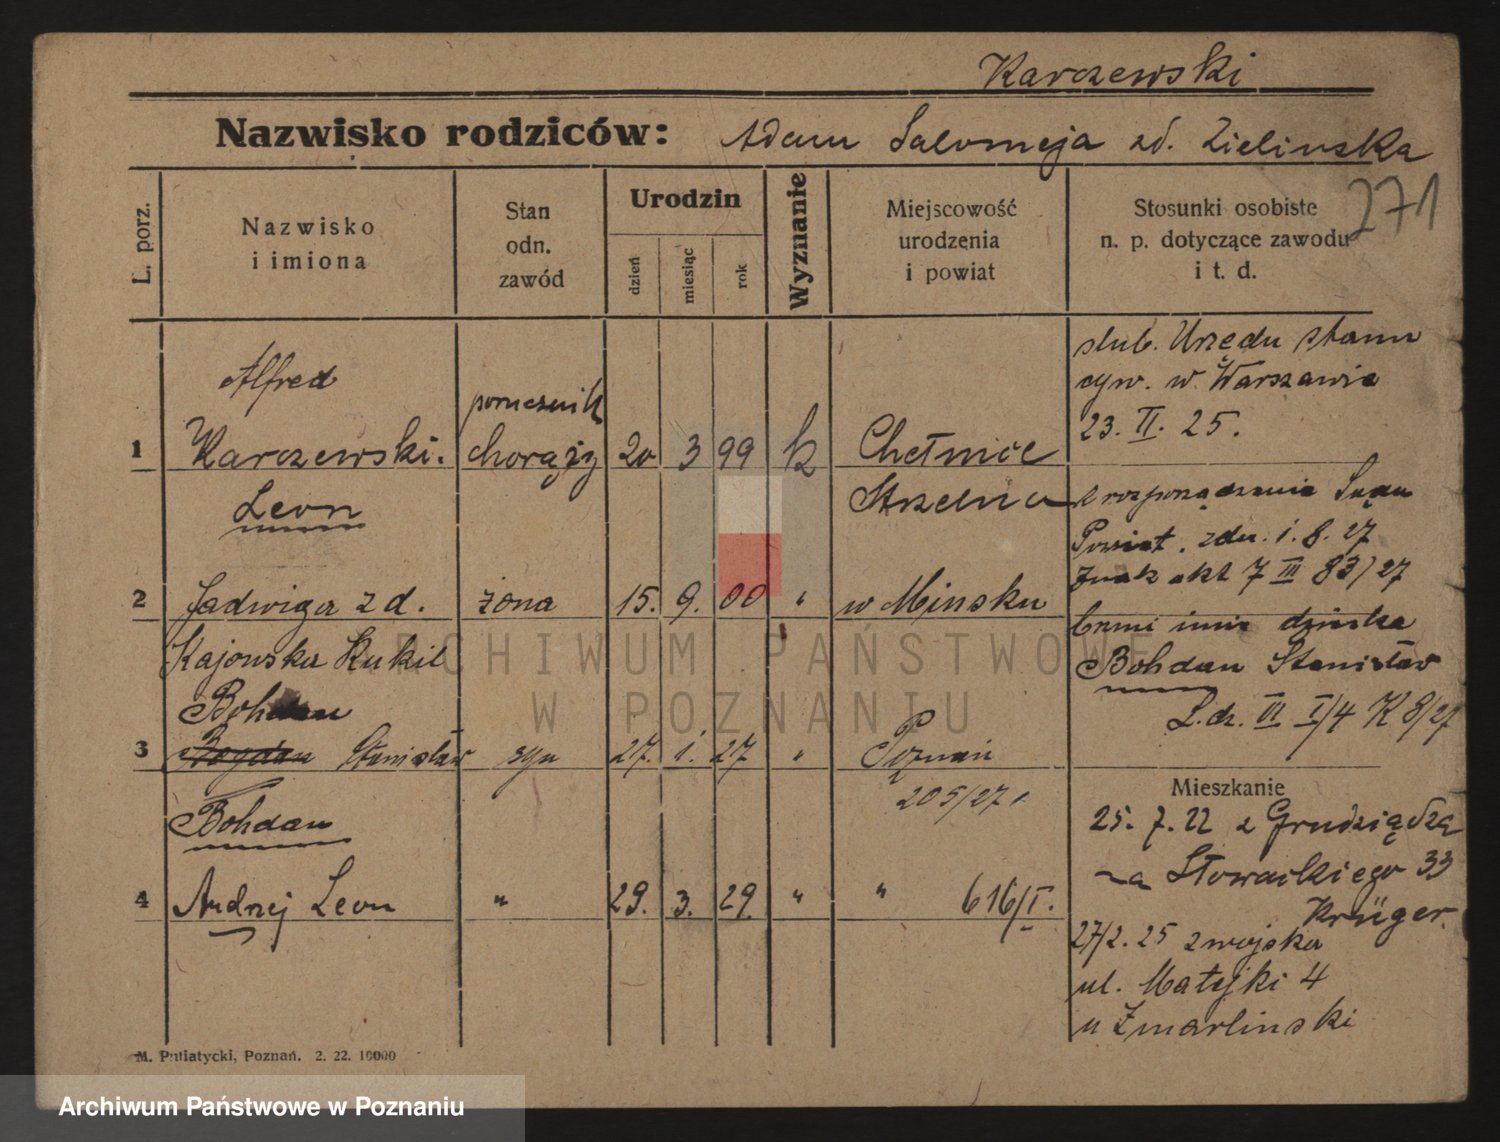 Karczewski
Nazwisko rodziców: Adam Salomeja zd. Zielinska
271
L. porz.
Nazwisko i imiona
Stan odn. zawód
Urodzin
dzień
miesiąc
rok
Wyznanie
Miejscowość urodzenia i powiat
Stosunki osobiste n. p. dotyczące zawodu i t. d.
Alfred
porucznik
1 Karczewski. chorąży 20 3 99 k Chełmice
Leon Strzelno
2 Jadwiga zd. żona 15. 9. 00 " w Minsku
Kajowska Kukil
Bohdan
3 Bogdan Stanisław syn 27. 1. 27 " Poznań
205/27
Bohdan
4 Andrzej Leon " 29. 3. 29. " " 616/I.
slub. Urzędu stanu
cyw. w. Warszawie
23. II. 25.
z rozporządzenia Sądu
Powiat. zdn. 1. 8. 27
Znak akt 7 III 83/27
brzmi imie dziecka
Bohdan Stanisław
L.dz. VI I/4 K 8/27
Mieszkanie
25. 7. 22 z Grudziądza
na Słowackiego 33
Krüger.
27/2. 25 z wojska
ul. Matejki 4
u Zmarlinski
M. Puliatycki, Poznań. 2. 22. 10000
ARCHIWUM PAŃSTWOWE
W POZNANIU
Archiwum Państwowe w Poznaniu